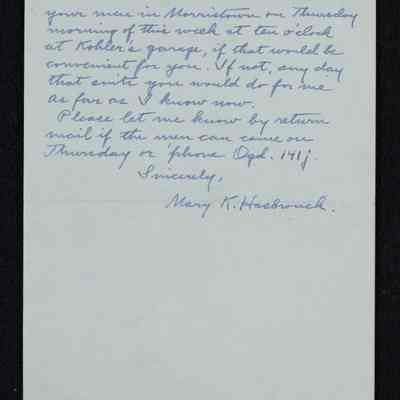 your men in Morristown on Thursday
morning of this week at ten o'clock
at Kohler's garage, if that would be
convenient for you. If not, any day
that suits you would do for me
as far as I know now.
Please let me know by return
mail if the men can come on
Thursday or 'phone Ogd. 141j.
Sincerely,
Mary K. Hasbrouck.